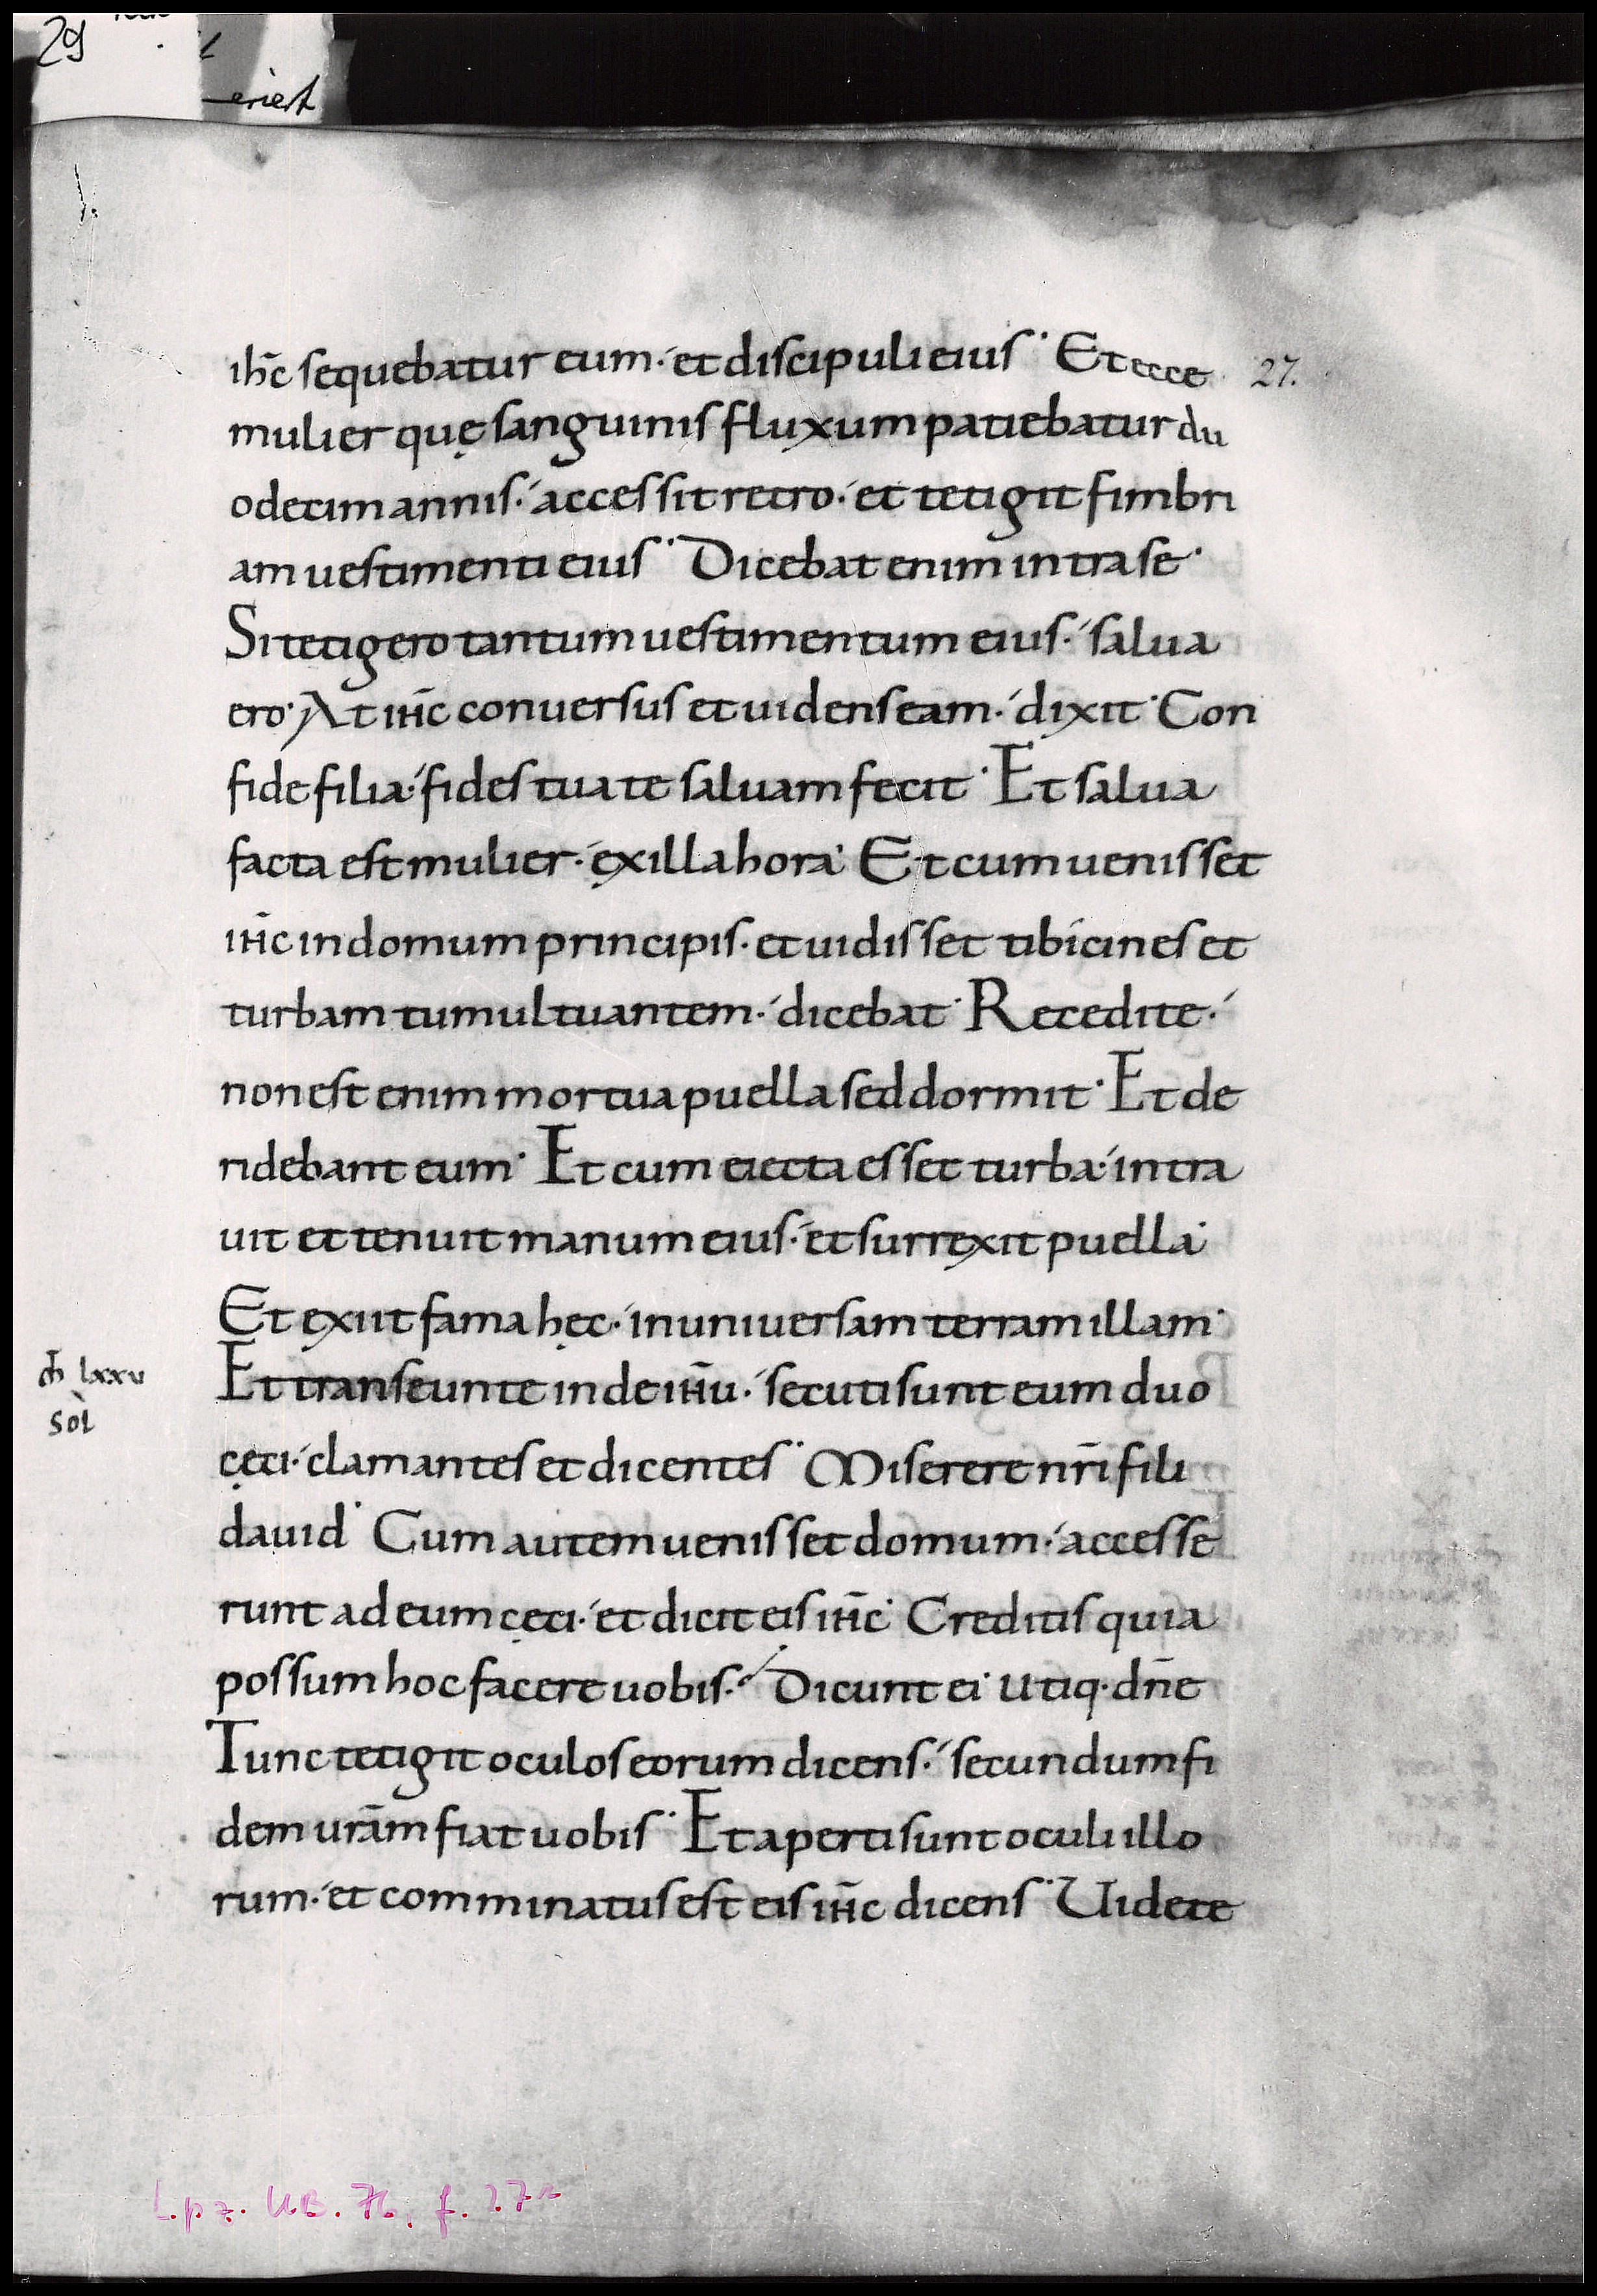 29
eriert
ihc̄ sequebatur eum· et discipuli eius· Et ecce 27.
mulier quę sanguinis fluxum patiebatur du
odecim annis· accessit retro· et tetigit fimbri
am uestimenti eius· Dicebat enim intra se·
Si tetigero tantum uestimentum eius· salua
ero· At ih̄c conuersus et uidens eam· dixit· Con
fide filia· fides tua te saluam fecit· Et salua
facta est mulier· ex illa hora· Et cum uenisset
ih̄c in domum principis· et uidisset tibicines et
turbam tumultuantem· dicebat· Recedite·
non est enim mortua puella sed dormit· Et de
ridebant eum· Et cum eiecta esset turba· intra
uit et tenuit manum eius· et surrexit puella·
Et exiit fama hęc· in uniuersam terram illam·
Et transeunte inde ih̄u· secuti sunt eum duo
mh̄ lxxv
sol
cęci· clamantes et dicentes· Miserere nr̄i fili
dauid· Cum autem uenisset domum· accesse
runt ad eum cęci· et dicit eis ih̄c· Creditis quia
possum hoc facere uobis· Dicunt ei· Utiq· dn̄e
Tunc tetigit oculos eorum dicens· secundum fi
dem urām fiat uobis· Et aperti sunt oculi illo
rum· et comminatus est eis ih̄c dicens· Uidete
Lpz. U.B. 76, f. 27r